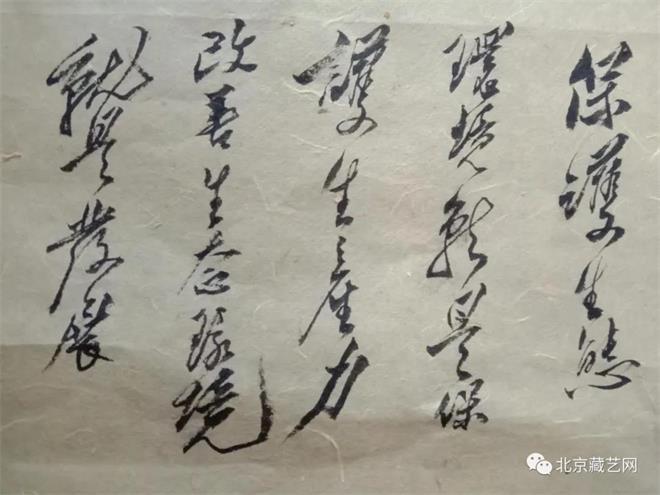 保護生態
環境就是保
護生產力
改善生态環境
就是發展
北京藏艺网